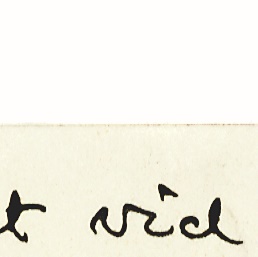 t vid